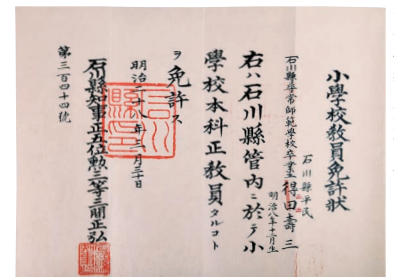 小學校教員免許狀
石川縣平民
石川縣尋常師範學校卒業生 得田壽三
明治八年十二月生
右ハ石川縣管内ニ於テ小
學校本科正教員タルコト
ヲ免許ス
明治二十八年三月三十日
石川縣知事正五位勲三等三間正弘
第三百四十四號
石川縣印